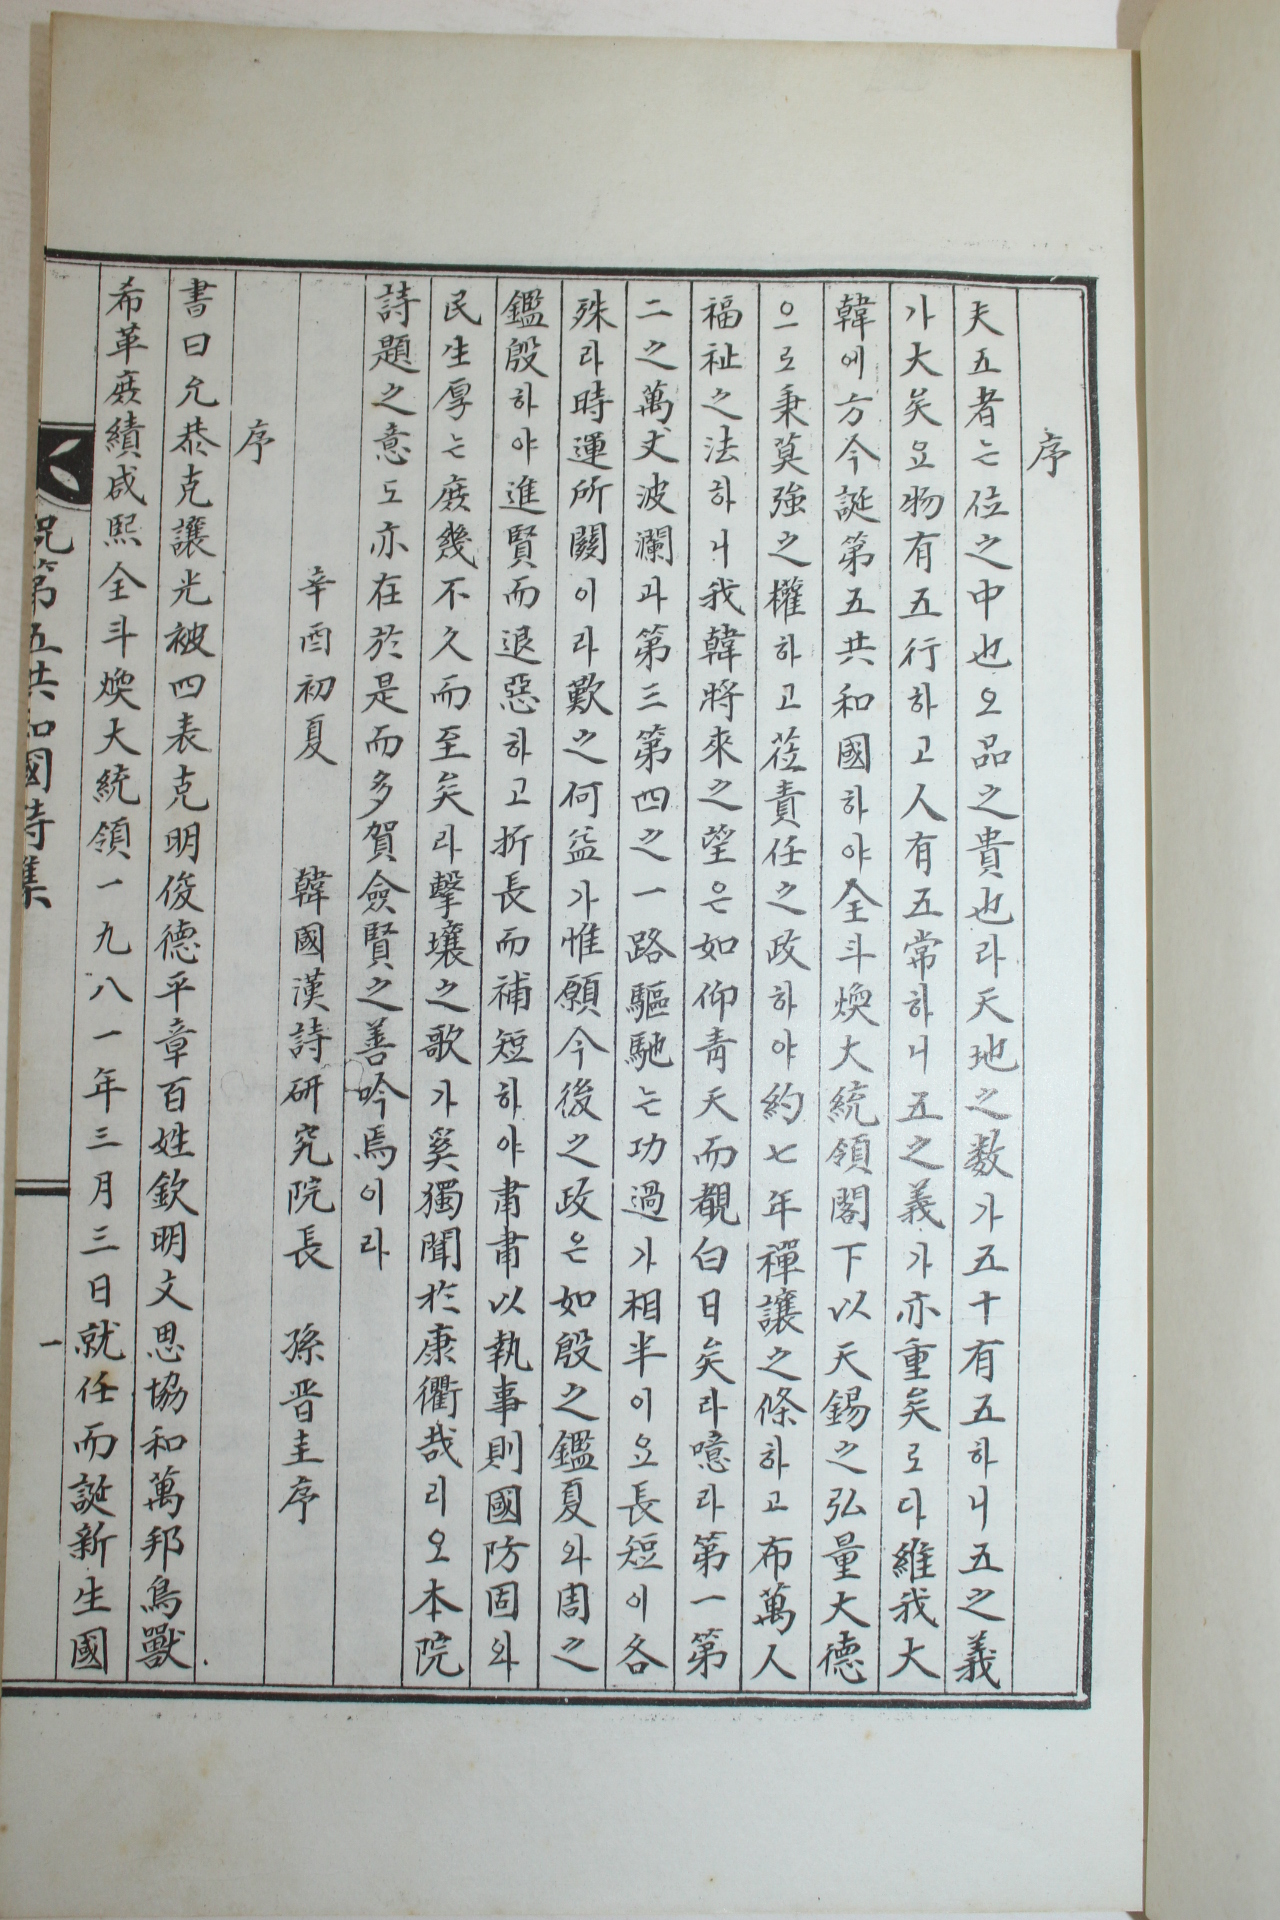 序
夫五者는位之中也오品之貴也라天地之数가五十有五하니五之義
가大矣요物有五行하고人有五常하니五之義가亦重矣로다維我大
韓에方今誕第五共和國하야全斗煥大統領閣下以天錫之弘量大德
으로秉莫強之權하고莅責任之政하야約七年禪讓之條하고布萬人
福祉之法하니我韓將來之望은如仰靑天而覩白日矣라噫라第一第
二之萬丈波瀾과第三第四之一路驅馳는功過가相半이요長短이各
殊라時運所關이라歎之何益가惟願今後之政은如殷之鑑夏와周之
鑑殷하야進賢而退惡하고折長而補短하야肅肅以執事則國防固와
民生厚는庶幾不久而至矣라擊壤之歌가奚獨聞於康衢哉리오本院
詩題之意도亦在於是而多賀僉賢之善吟焉이라
辛酉初夏 韓國漢詩硏究院長 孫晋圭序
序
書曰允恭克讓光被四表克明俊德平章百姓欽明文思協和萬邦鳥獸
希革庶績咸熙全斗煥大統領一九八一年三月三日就任而誕新生國
祝第五共和國詩集
一